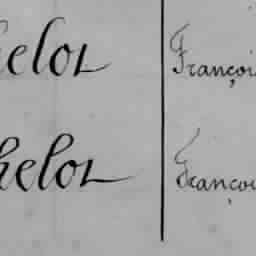 helot Françoi
helot Françoi